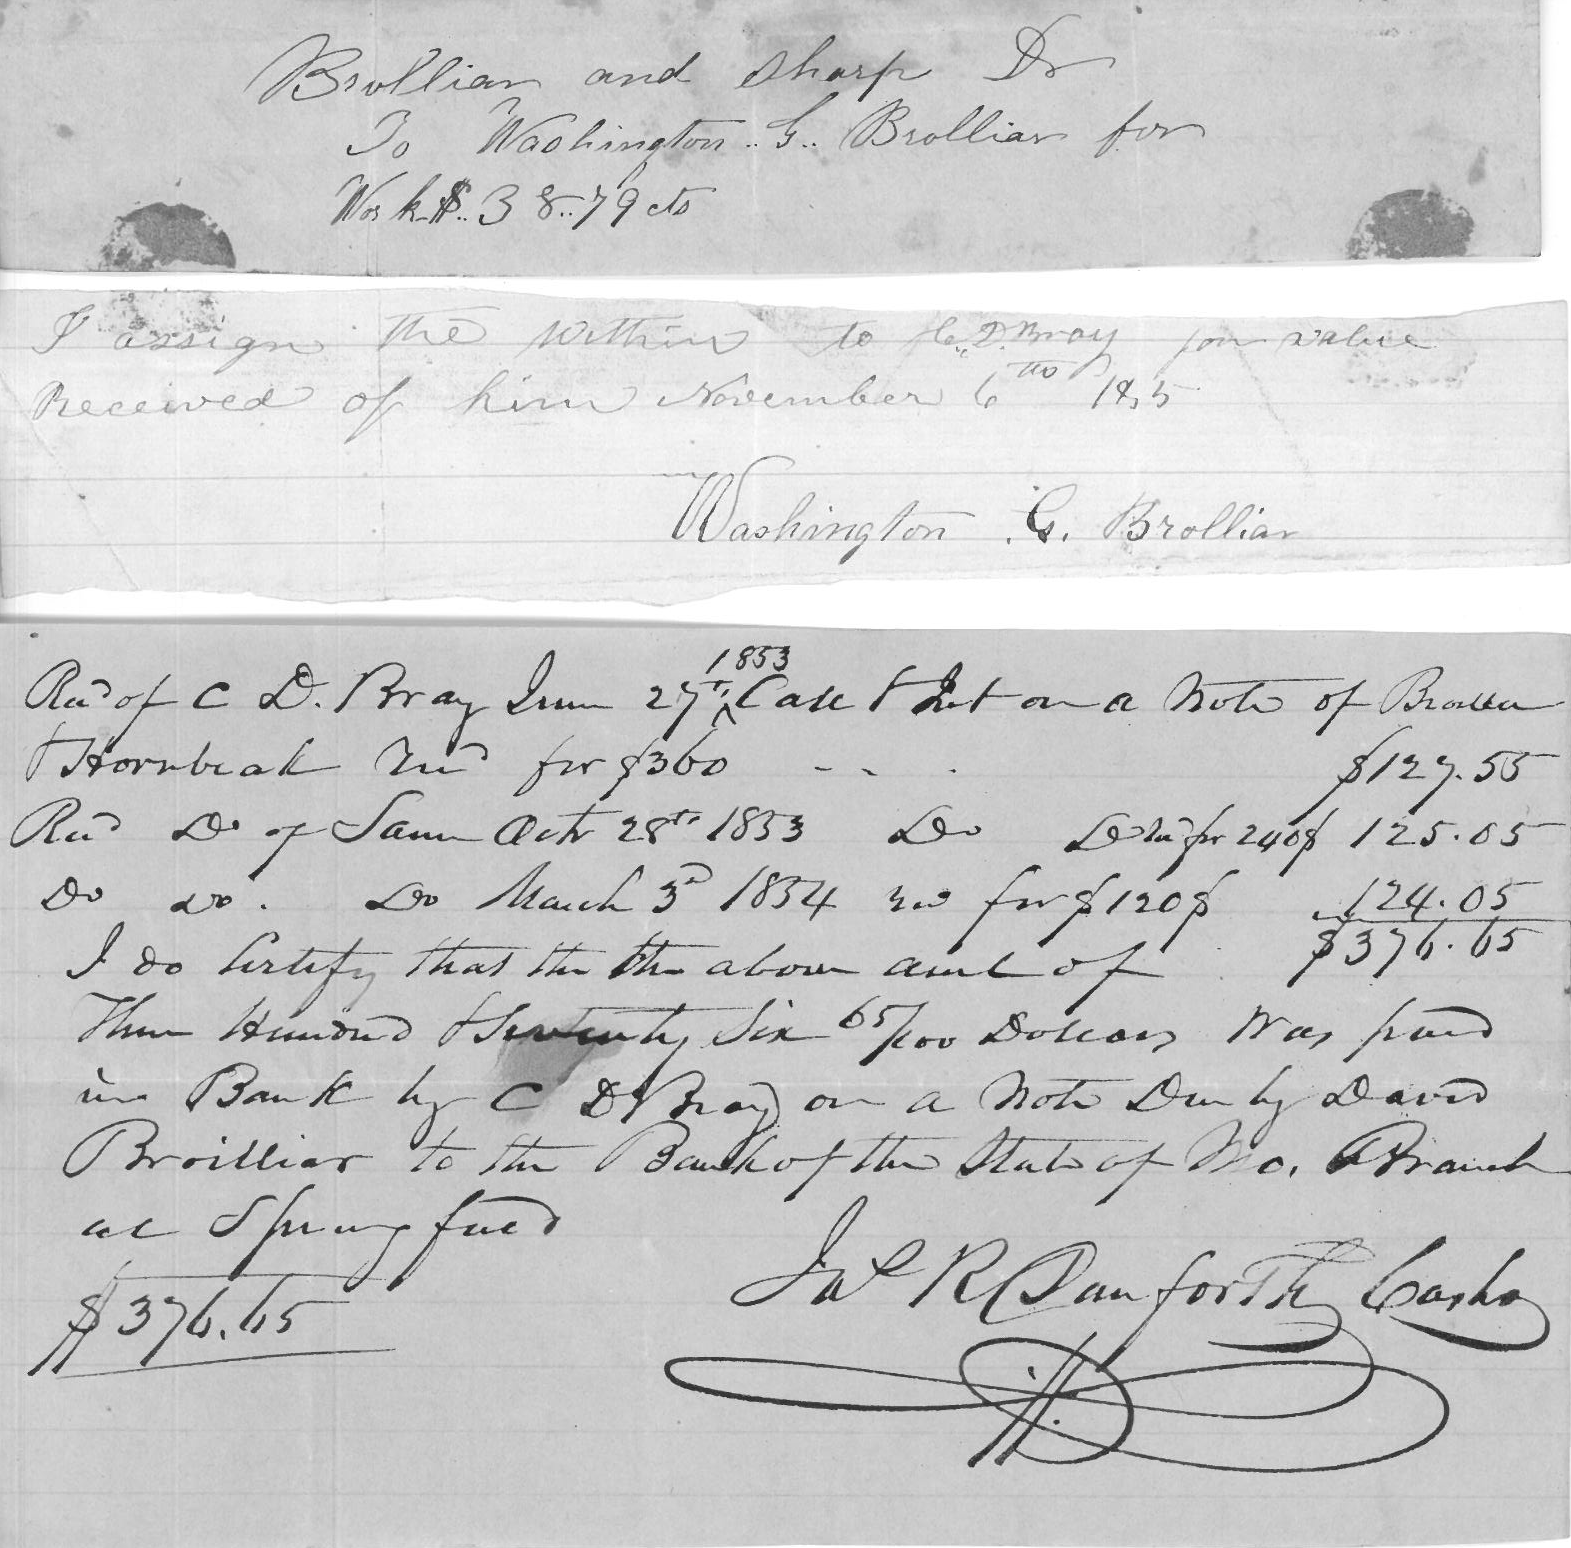 Brolliar and Sharp Dr
To Washington .. G.. Brolliar for
Work $.. 38..79 cts
I assign the within to C.. D. Bray for value
Received of him November 6th 1855
Washington .G. Brolliar
Recd of C D. Bray June 27th 1853 Call & Int on a Note of
& Hornbeak for $360 - - - $127.55
Recd Do of Same Octr 28th 1853 Do Do for 240$ 125.05
Do Do. Do March 3d 1854 for $120$ 124.05
$376.65
I do Certify that the the above amt of
Three Hundred & Seventy Six 65/100 Dollars Was paid
in Bank by C D Bray on a Note Due by David
Broilliar to the Bank of the State of Mo. Branch
at Springfield
$376.65
Jas R Danforth Cashr